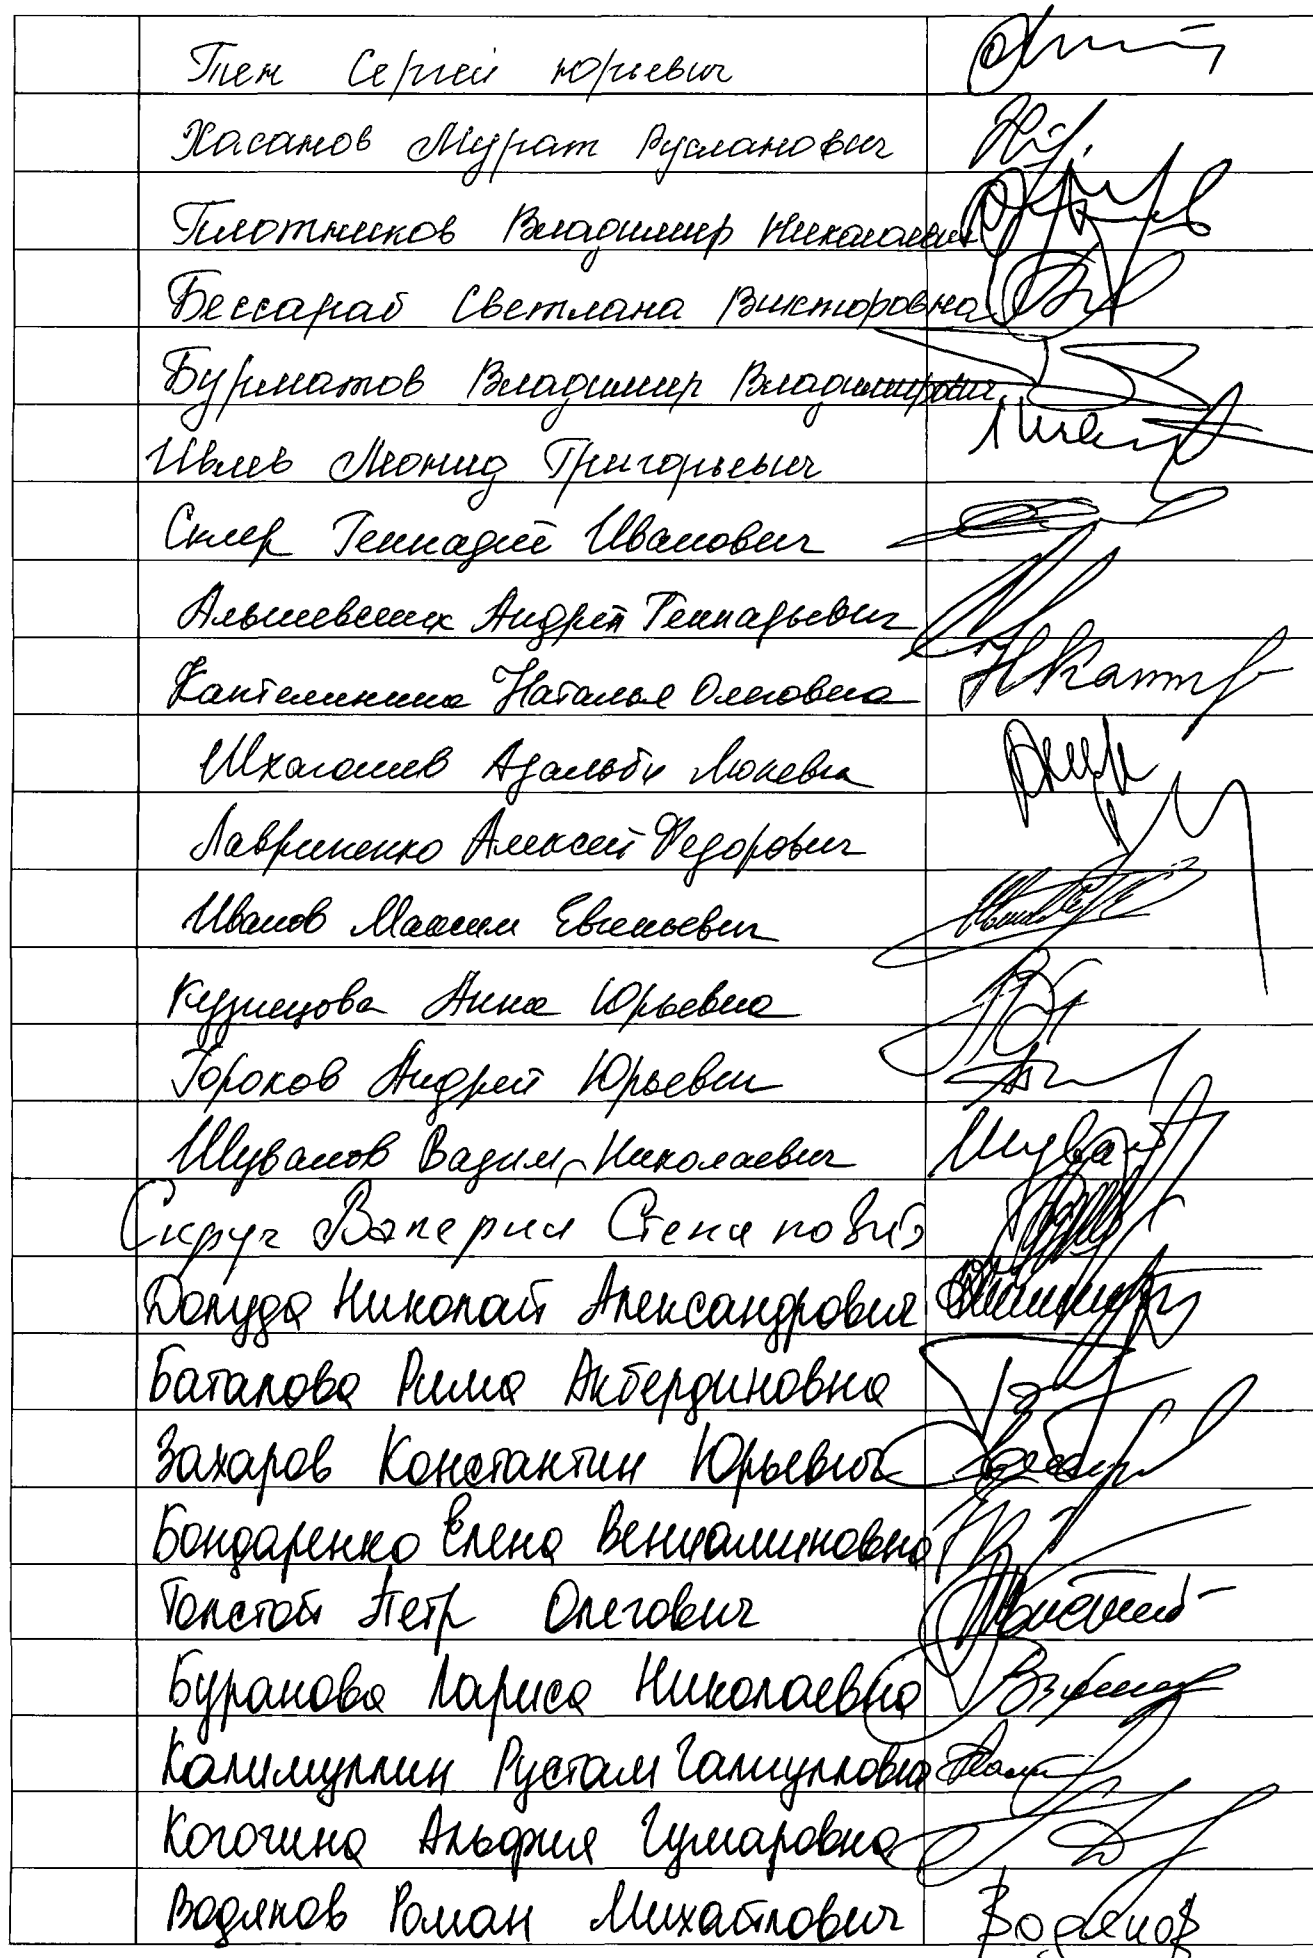 Тен Сергей Юрьевич
Хасанов Мурат Русланович
Плотников Владимир Николаевич
Бессараб Светлана Викторовна
Бурматов Владимир Владимирович
Ивлев Леонид Григорьевич
Скляр Геннадий Иванович
Альшевских Андрей Геннадьевич
Каптелинина Наталья Олеговна
Шхагошев Адальби Люлевич
Лавриненко Алексей Федорович
Иванов Максим Евгеньевич
Кузнецова Анна Юрьевна
Горохов Андрей Юрьевич
Шувалов Вадим Николаевич
Скруг Валерий Степанович
Долуда Николай Александрович
Баталова Рима Акбердиновна
Захаров Константин Юрьевич
Бондаренко Елена Вениаминовна
Толстой Петр Олегович
Буранова Лариса Николаевна
Калимуллин Рустам Галиуллович
Когогина Альфия Гумаровна
Водянов Роман Михайлович Водянов